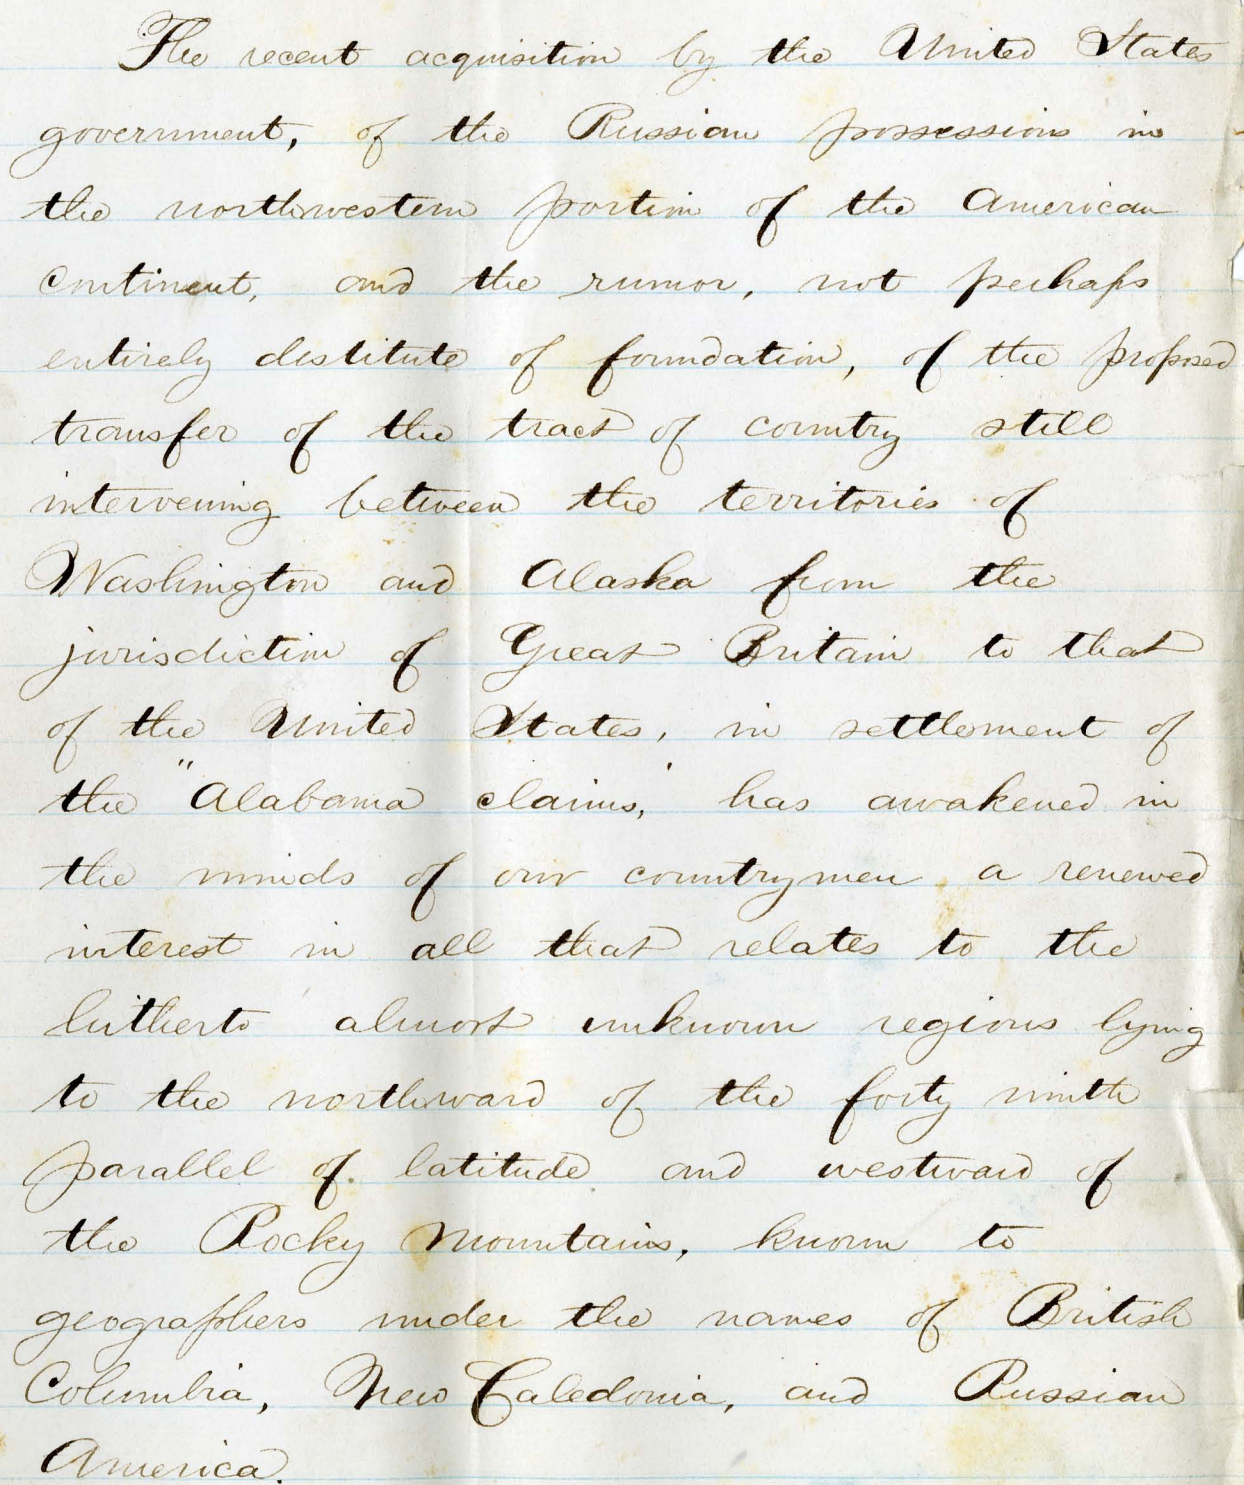 The recent acquisition by the United States
government, of the Russian possessions in
the northwestern portion of the American
continent, and the rumor, not perhaps
entirely destitute of foundation, of the proposed
transfer of the tract of country still
intervening between the territories of
Washington and Alaska from the
jurisdiction of Great Britain to that
of the United States, in settlement of
the "Alabama claims,' has awakened in
the minds of our countrymen a renewed
interest in all that relates to the
hitherto almost unknown regions lying
to the northward of the forty ninth
parallel of latitude and westward of
the Rocky Mountains, known to
geographers under the names of British
Columbia, New Caledonia, and Russian
America.